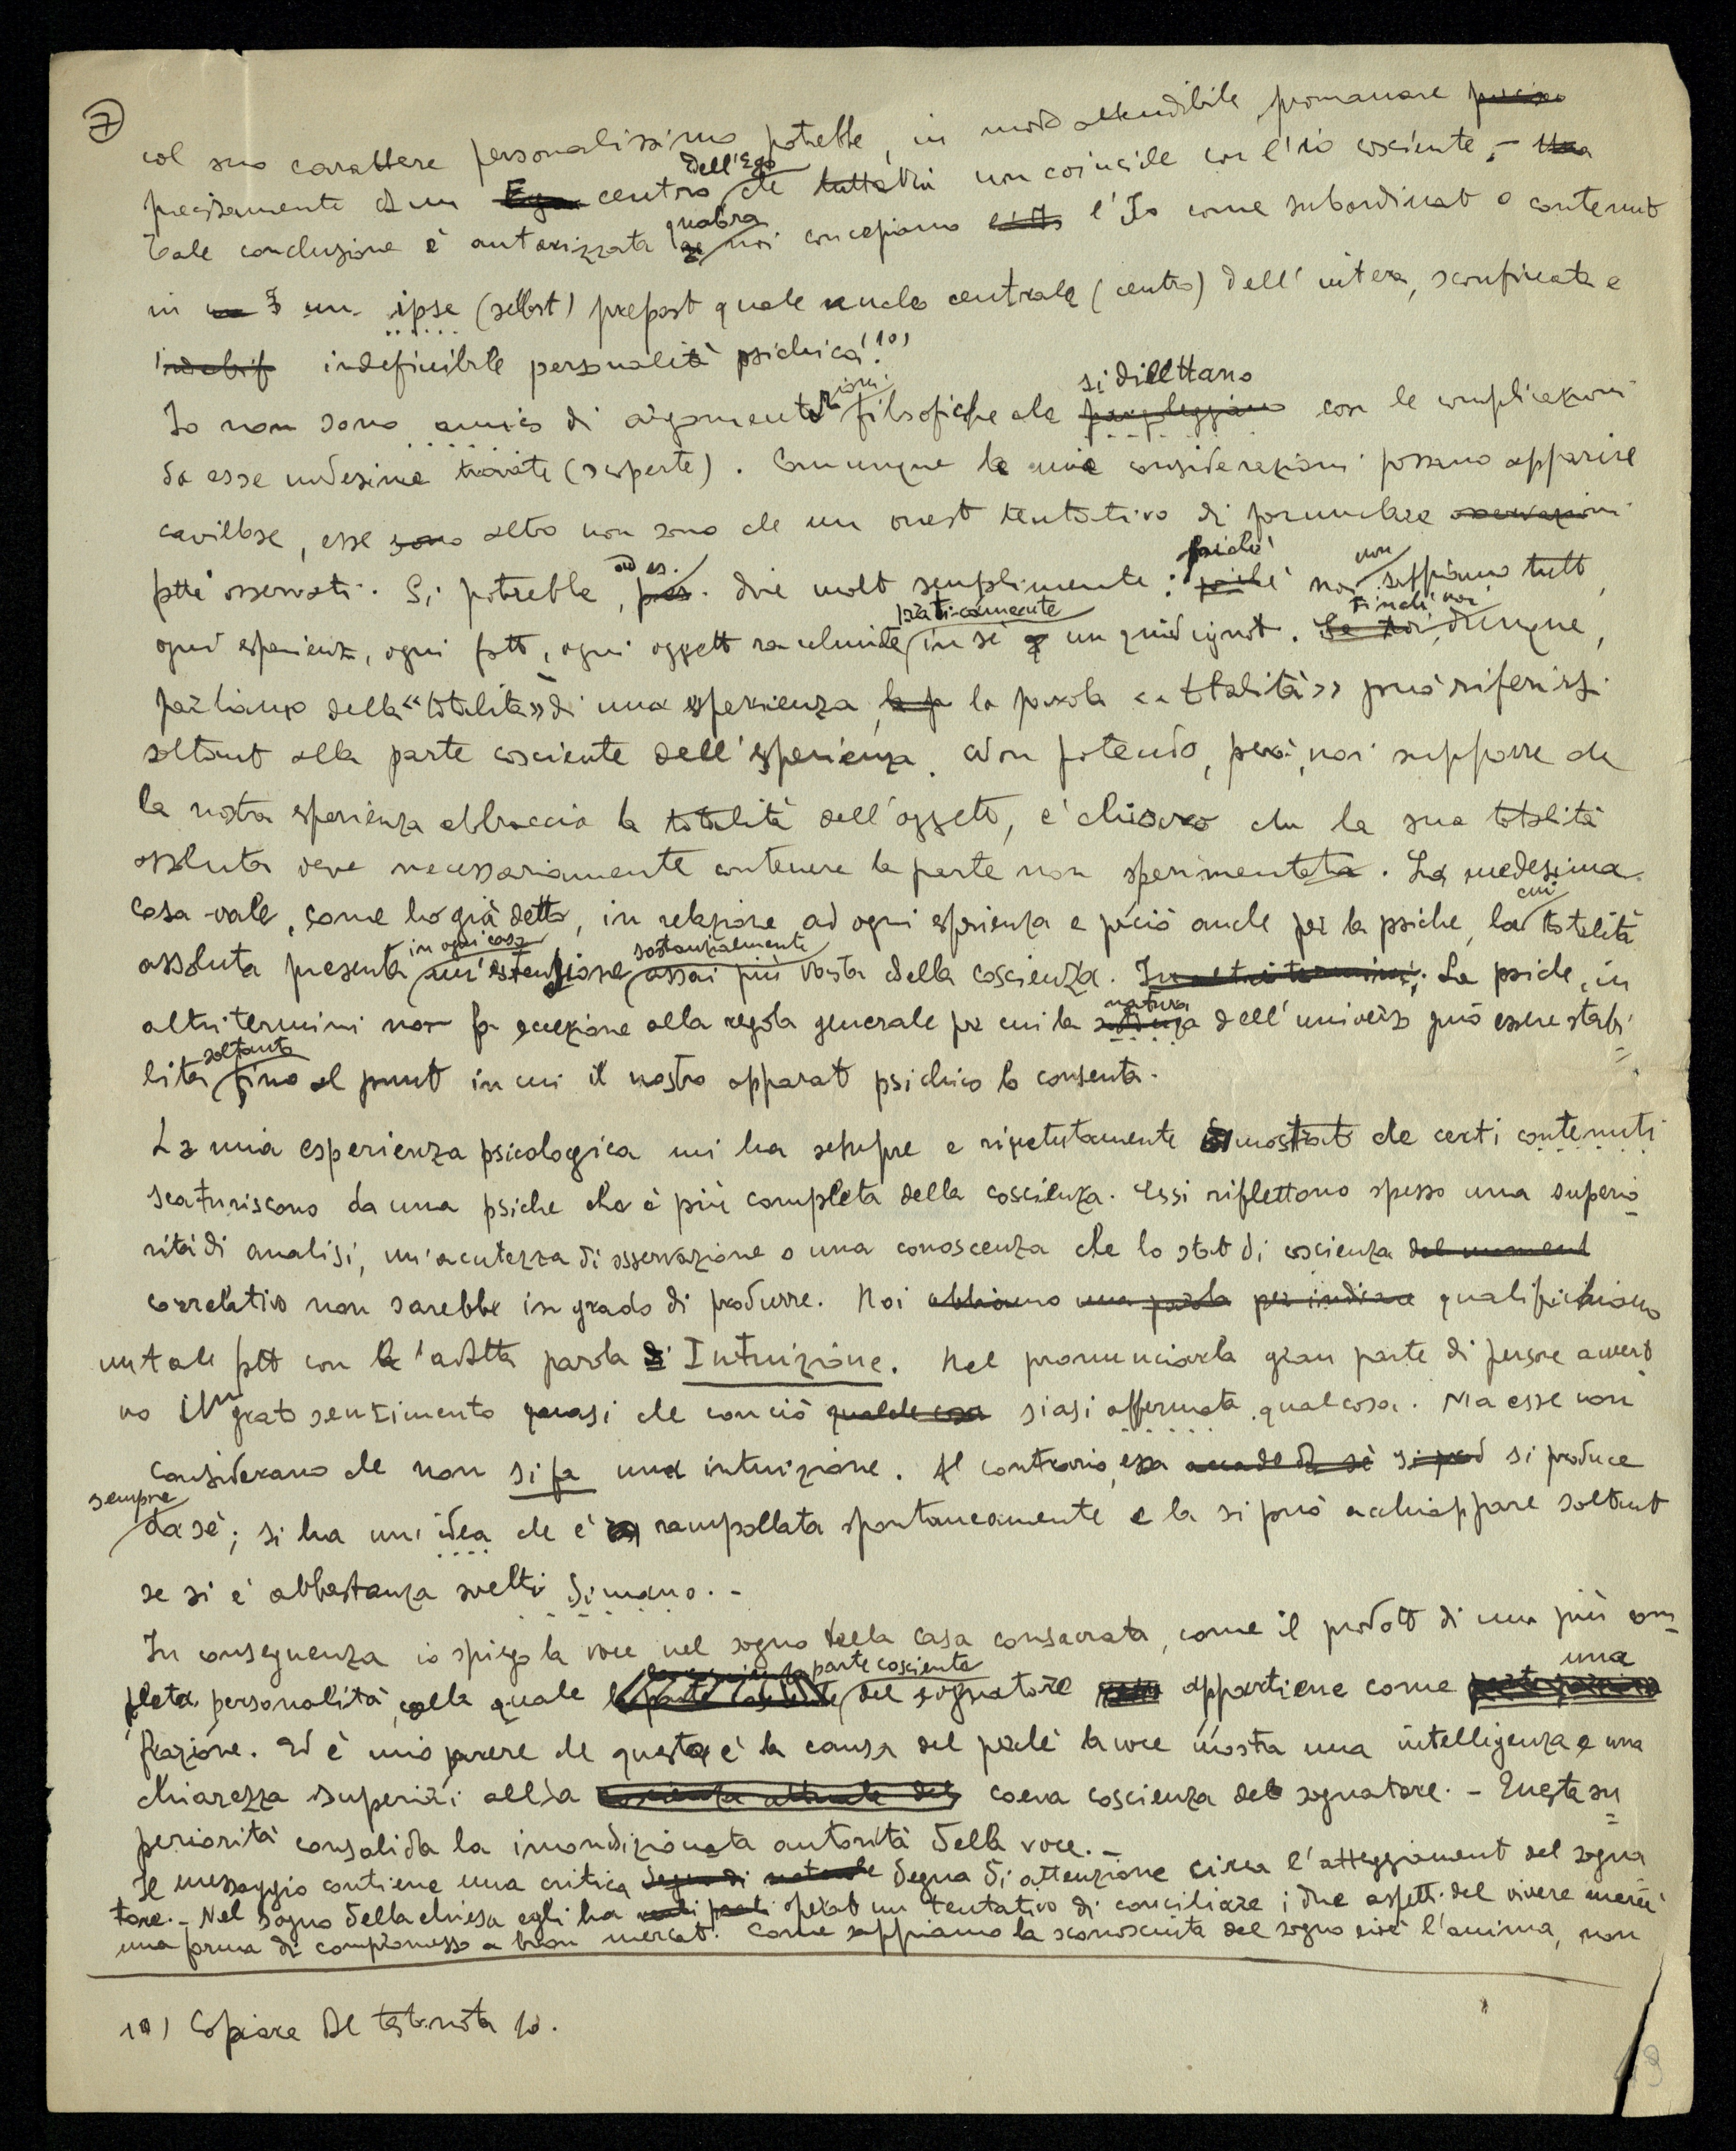 7
col suo carattere personalissimo potrebbe, in modo attendibile, promanare
precisamente da un centro dell'Ego che non coincide con l'io cosciente. -
Tale conclusione è autorizzata qualora noi concepiamo l'Io come subordinato o contenuto
in un ipse (selbst) preposto quale nucleo centrale (centro) dell'intera, sconfinata e
indefinibile personalità psichica. 10)
Io non sono amico di argomentazioni filosofiche che si dilettano con le complicazioni
da esse medesime trovate (scoperte). Comunque le mie considerazioni possano apparire
cavillose, esse altro non sono che un onesto tentativo di formulare
fatti osservati. Si potrebbe, ad es. dire molto semplicemente: poiché noi non sappiamo tutto,
ogni esperienza, ogni fatto, ogni oggetto racchiude praticamente in sé un quid ignoto. Finché noi, dunque,
parliamo della «totalità» di una esperienza, la parola «totalità» può riferirsi
soltanto alla parte cosciente dell'esperienza. Non potendo, però, noi supporre che
la nostra esperienza abbraccia la totalità dell'oggetto, è chiaro che la sua totalità
assoluta deve necessariamente contenere la parte non sperimentata. La medesima
cosa vale, come ho già detto, in relazione ad ogni esperienza e perciò anche per la psiche, la cui totalità
assoluta presenta in ogni caso un'estensione sostanzialmente assai più vasta della coscienza. La psiche, in
altri termini non fa eccezione alla regola generale per cui la natura dell'universo può essere stabi-
lita soltanto fino al punto in cui il nostro apparato psichico lo consenta.
La mia esperienza psicologica mi ha sempre e ripetutamente dimostrato che certi contenuti
scaturiscono da una psiche che è più completa della coscienza. Essi riflettono spesso una superio-
rità di analisi, un'acutezza di osservazione o una conoscenza che lo stato di coscienza
correlativo non sarebbe in grado di produrre. Noi qualifichiamo
un tale fatto con l'adatta parola Intuizione. Nel pronunciarla gran parte di persone avverto-
no un grato sentimento quasi che con ciò siasi affermata qualcosa. Ma esse non
considerano che non si fa una intuizione. Al contrario, essa si produce
sempre da sé; si ha un'idea che è rampollata spontaneamente e la si può acchiappare soltanto
se si è abbastanza svelti di mano. -
In conseguenza io spiego la voce nel sogno della casa consacrata, come il prodotto di una più com-
pleta personalità, alla quale la parte cosciente del sognatore appartiene come una
frazione. Ed è mio parere che questa è la causa del perché la voce mostra una intelligenza e una
chiarezza superiori alla coeva coscienza del sognatore. - Questa su-
periorità consolida la incondizionata autorità della voce. -
Il messaggio contiene una critica degna di attenzione circa l'atteggiamento del sogna-
tore. - Nel sogno della chiesa egli ha operato un tentativo di conciliare i due aspetti del vivere mercé
una forma di compromesso a buon mercato. Come sappiamo la sconosciuta del sogno cioè l'anima, non
10) Copiare dal testo nota 10.